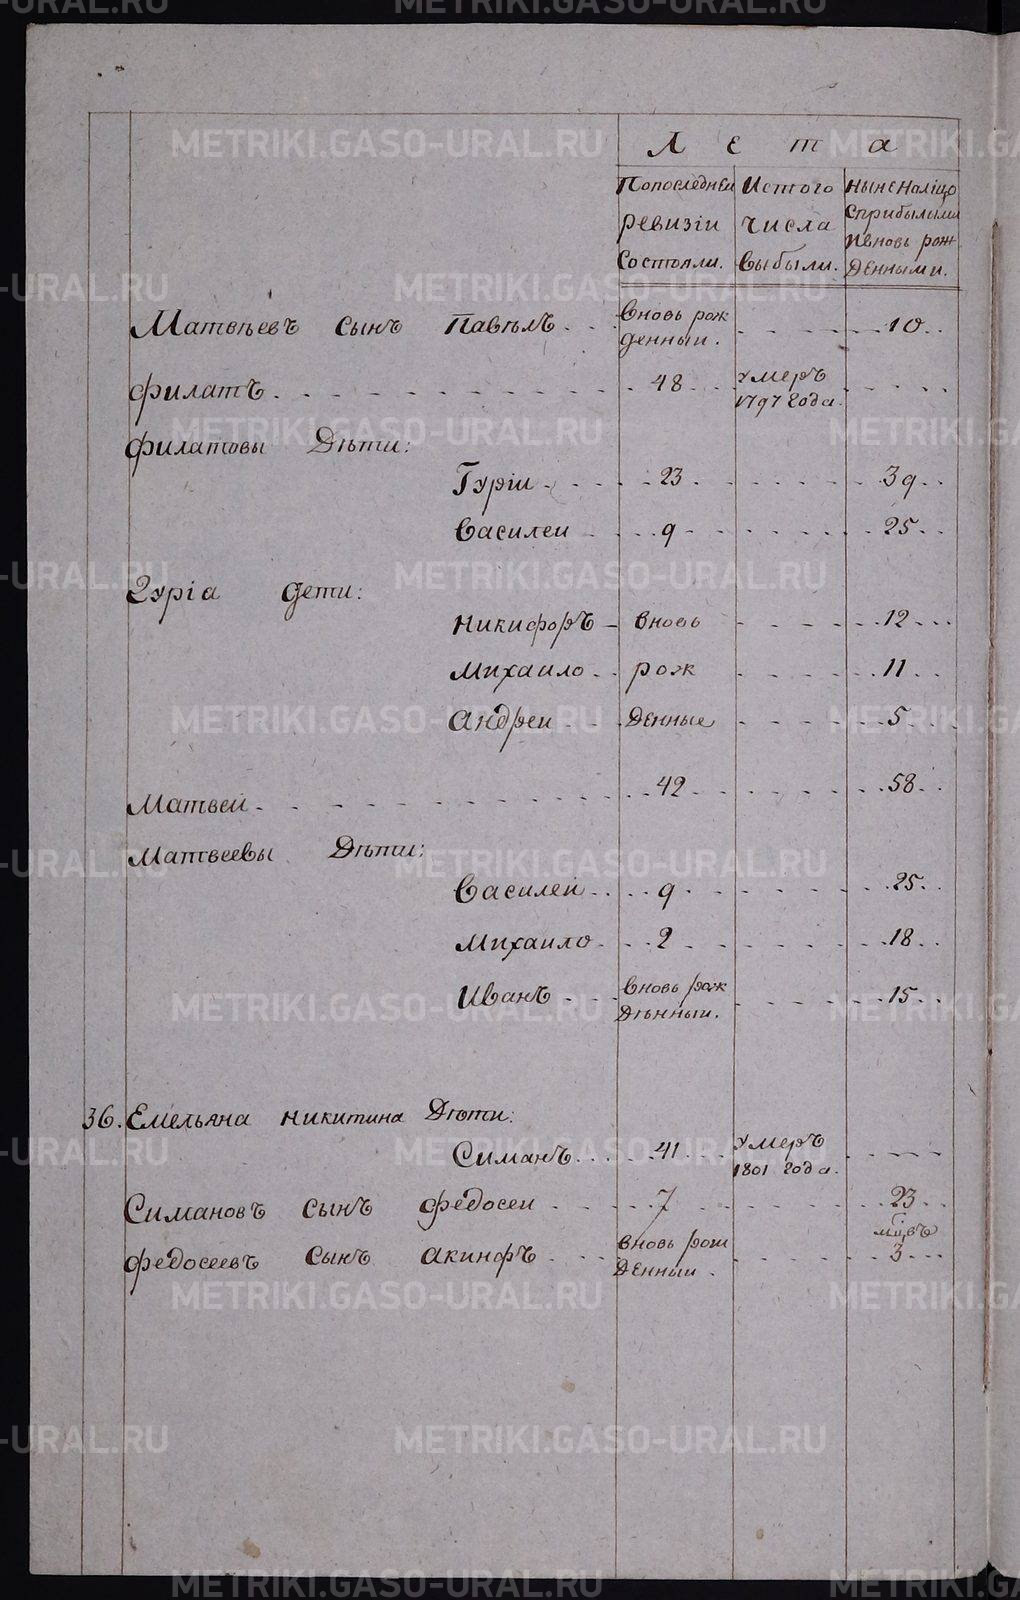 Лета
Попоследней Истого ныне налiцо
ревизiи числа сприбылыми
состояли. выбыли. ивновь рож
денными.
Матвѣевъ сынъ Павѣлъ вновь рож 10
денныи.
филатъ 48 умеръ
1797 года.
филатовы Дѣти:
Гурiи 23 39
Василеи 9 25
Гурiа дети:
никифоръ вновь 12
Михаило рож 11
андреи денные 5
Матвеи 42 58
Матвеевы Дѣти:
Василеи 9 25
Михаило 2 18
Иванъ вновь рож 15
дѣнныи.
36. Емельяна никитина Дѣти:
Симанъ 41 умеръ
1801 года.
Симановъ сынъ федосеи 7 23
федосеевъ сынъ акинфъ вновь рож мцвъ
денныи. 3
METRIKI.GASO-URAL.RU